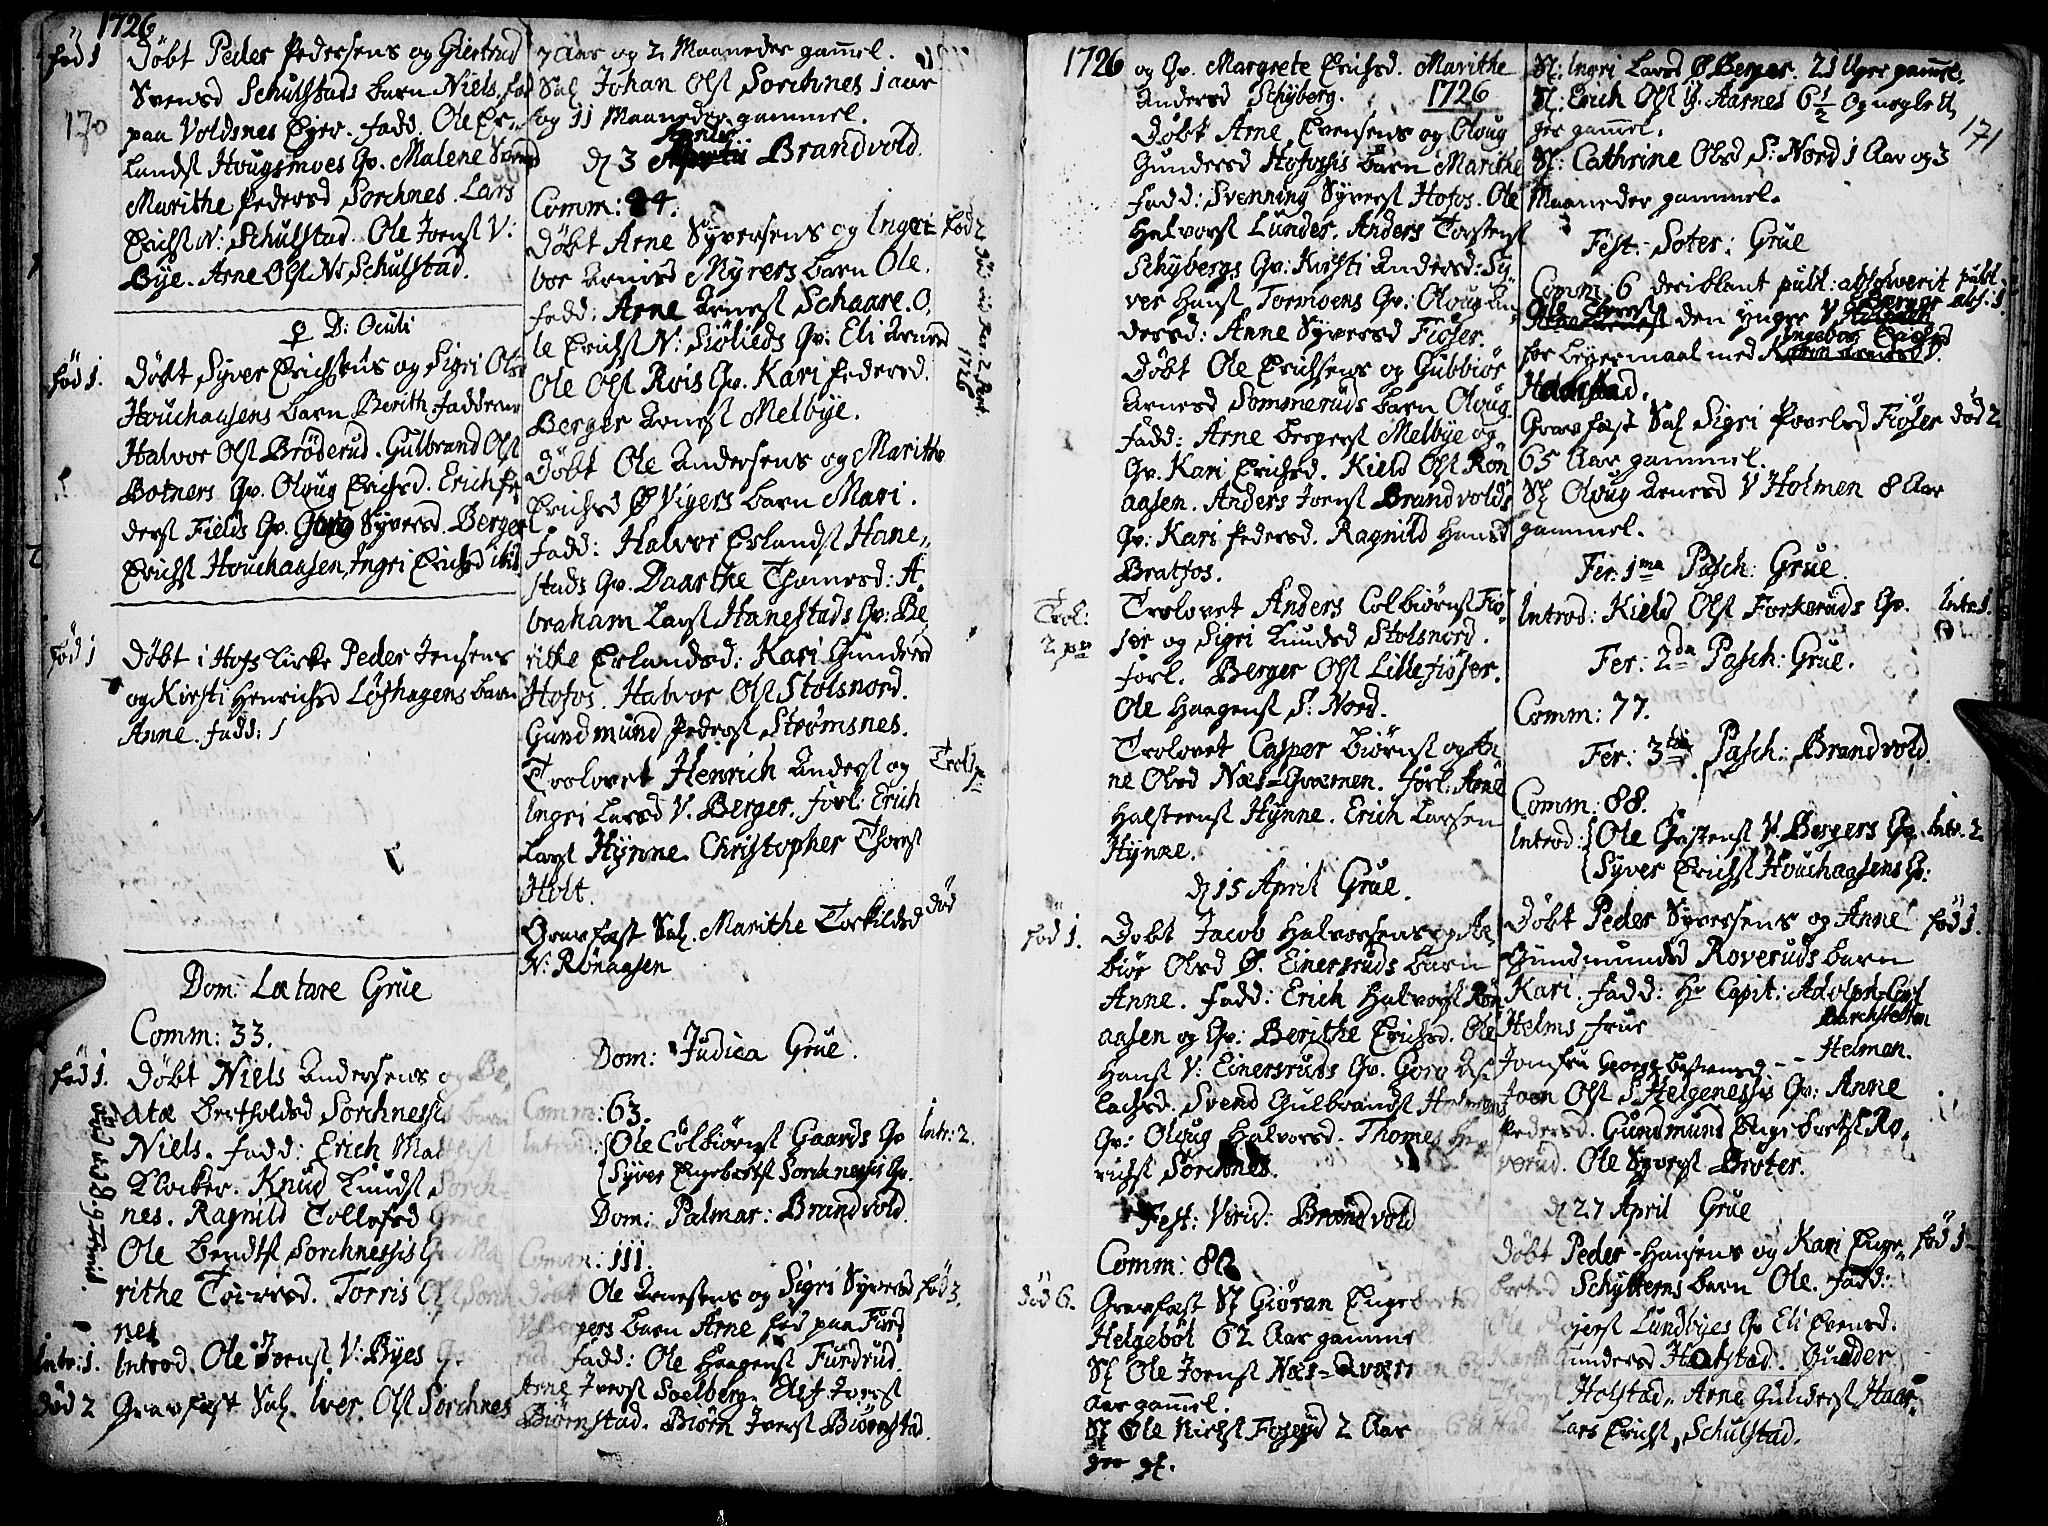 1726
Föd 1
170
Döbt Peder Pedersens og Giertrud
Svensd Schulstads barn Niels, föd
paa Voldsnes Eyer. Fadd. Ole Er-
landst Hougsmoes Qv. Malene Svend
Marithe Pedersd Sorchnes. Lars
Erichst N: Schulstad. Ole Joenst V:
Bye. Arne Olst N: Schulstad.
D: Oculi
Föd 1.
Döbt Syver Erichsens og Sigri Ols
Houchaasens barn Berith. Faddere
Halvor Olst Bröderud. Gulbrand Olst
Botners Qv. Oloug Erichsd. Erich Pe
derst Fields Qv. Goro Syversd. Berger
Erichst Houchaasen, Ingri Erichsd
Föd 1
Döbt i Hofs Kirke Peder Jensens
og Kirsti Henrichsd Löfhagens barn
Anne. Fadd:
Dom: Lætare Grue
Comm: 33.
Föd 1.
Döbt Niels Andersens og Be,
ata Bertholdsd Sorchnessis barn
Niels. Fadd: Erich Mat
Klocker. Knud Knudst Sorch-
nes. Ragnild Tollefsd Grue
Ole Bendtst Sorchnessis Qv Ma
rithe Toersd. Torris Olst Sorch
nes
Intr: 1.
Introd. Ole Joenst V: Byes Qv.
Död 2
Gravfæst Sal. Iver Olst Sorchnes
7 Aar og 2 Maaneder gamel.
Sal Johan Olst Sorchnes 1 aar
og 11 Maaneder gammel.
d 3 Brandvold.
Comm: 84.
Döbt Arne Syversens og Inge
Föd 2
bor Arnesd Myrers barn Ole.
Fadd: Arne Arnest Schaare. O,
le Erichst N: Siölieds Qv: Eli Arnesd
1726
Ole Olst Rois Qv. Kari Pedersd.
Berger Arnest Melbye.
Döbt Ole Andersens og Marithe
Erichsd Ø Vigers barn Mari.
Fadd: Halvor Erlandst Hane,,
stads Qv. Daarthe Thomesd: A,
braham Larst Hanestads Qv: Be,
rithe Erlandsd: Kari Gundersd
Hofos. Halvor Olst Stolsnord.
Gundmund Pederst Strömsnes.
Trolovet Henrich Anderst og
Trol 1
Ingri Larsd V. Berger. Forl: Erich
Larst Hynne. Christopher Thorst
Holt.
Gravfæst Sal. Marithe Torkildsd
död
N: Rönaasen
Dom: Judica Grue.
Comm: 63.
Introd: Ole Colbiörnst Gaards Qv
Intr: 2.
Syver Engebretst Sorchnessis Qv.
Dom: Palmar: Brandvold.
Comm: 111.
Döbt Ole Arnesens og Sigri Syversd
Föd 3.
pers barn Arne föd paa Furd
rud Fadd: Ole Haagenst Furdrud.
Arne Iverst Soelberg. Elef Iverst
Biörnstad. Biörn Iverst Biörnstad.
1726
og Qv. Margrete Erichsd. Marithe
Andersd Schyberg.
1726
Döbt Arne Evensens og Oloug
Gundersd Hofossis barn Marithe
Fadd: Svenning Syverst Hofos. Ole
Halvorst Lunder. Anders Torstenst
Schybergs Qv: Kirsti Andersd: Sy,
ver Hanst Tormoens Qv: Oloug An
dersd: Anne Syversd Fiöser.
Döbt Ole Erichsens og Gubbiör
Arnesd Sommeruds barn Oloug
Fadd: Arne Bergerst Melbye og
Qv. Kari Erichsd. Kield Olst Rön
aasen. Anders Joenst Brandvolds
Qv: Kari Pedersd. Ragnild Hansd
Bratfos.
Trol:
2 par
Trolovet Anders Colbiörnst Fiö
ser og Sigri Knudsd Stolsnord.
Forl. Berger Olst Lillefiöser.
Ole Haagenst S: Nord.
Trolovet Casper Biörnst og An
ne Olsd Næs=Qværnen. Forl: Arne
Halstenst Hynne. Erich Larsen
Hynne.
d 15 April Grue.
Föd 1.
Döbt Jacob Halvorsens og Aa,
biör Olsd Ø. Einersruds barn
Anne. Fadd: Erich Halvorst Rön
aasen og Qv: Berithe Erichsd. Ole
Hanst V: Einersruds Qv. Goro As
lachsd. Svend Gulbrandst Hodmæns
Qv: Oloug Halvorsd. Thomes He
richst Sorchnes.
Fest: Virid: Brandvold
Comm: 80
död 6.
Gravfæst Sl Giöran Engebertsd
Helgeböl 62 Aar gamme
Sl Ole Joenst Næs=Qværn
Aar gamel.
Sl Ole Nielst Foseyd 2 Aar
Sl: Ingri Larsd Ø. Berger. 21 Uger gamel.
Sl: Erich Olst G. Aarnes 6 1/2 og nogle U,
ger gamel.
171
Sl: Cathrine Olsd S: Nord 1 Aar og 3
Maaneder gammel.
Fest: Soter: Grue
Comm: 6 deriblant publ: absolverit
publ. abs: 1.
Ole den ynger V Berger
for Leyermaal med Ingeborg Erichsd
Haldstad.
Gravfæst Sal Sigri Povelsd Fiöser
död 2
65 Aar gammel.
Sl Oloug Arnesd V Holmen 8 Aar
gammel.
Fer: 1ma Pasch: Grue
Introd: Kield Olst Forkeruds Qv.
Intr: 1.
Fer: 2da Pasch: Grue.
Comm: 77.
Fer: 3tia Pasch: Brandvold
Comm: 88.
Introd: Ole Christenst V. Bergers Qv.
Intr. 2
Syver Erichst Houchaasens Qv:
Döbt Peder Syversens og Anne
Föd 1.
Gundmundsd Roveruds barn
Kari. Fadd: Hr Capit: Adolph Carl
Helms Frue
Jomfru George
Helmen.
Joen Olst S Helgenessis Qv: Anne
Pedersd. Gundmund Engebretst Ro,
verud. Ole Syverst Broter.
d 27 April Grue
Döbt Peder Hansens og Kari Enge,
Föd 1
bertsd Schyttens barn Ole. Fadd:
Lundbyes Qv Eli Evensd.
Gundersd Holstad. Gunder
Holstad. Arne Gulderst Haar,
Lars Erichst Schulstad.